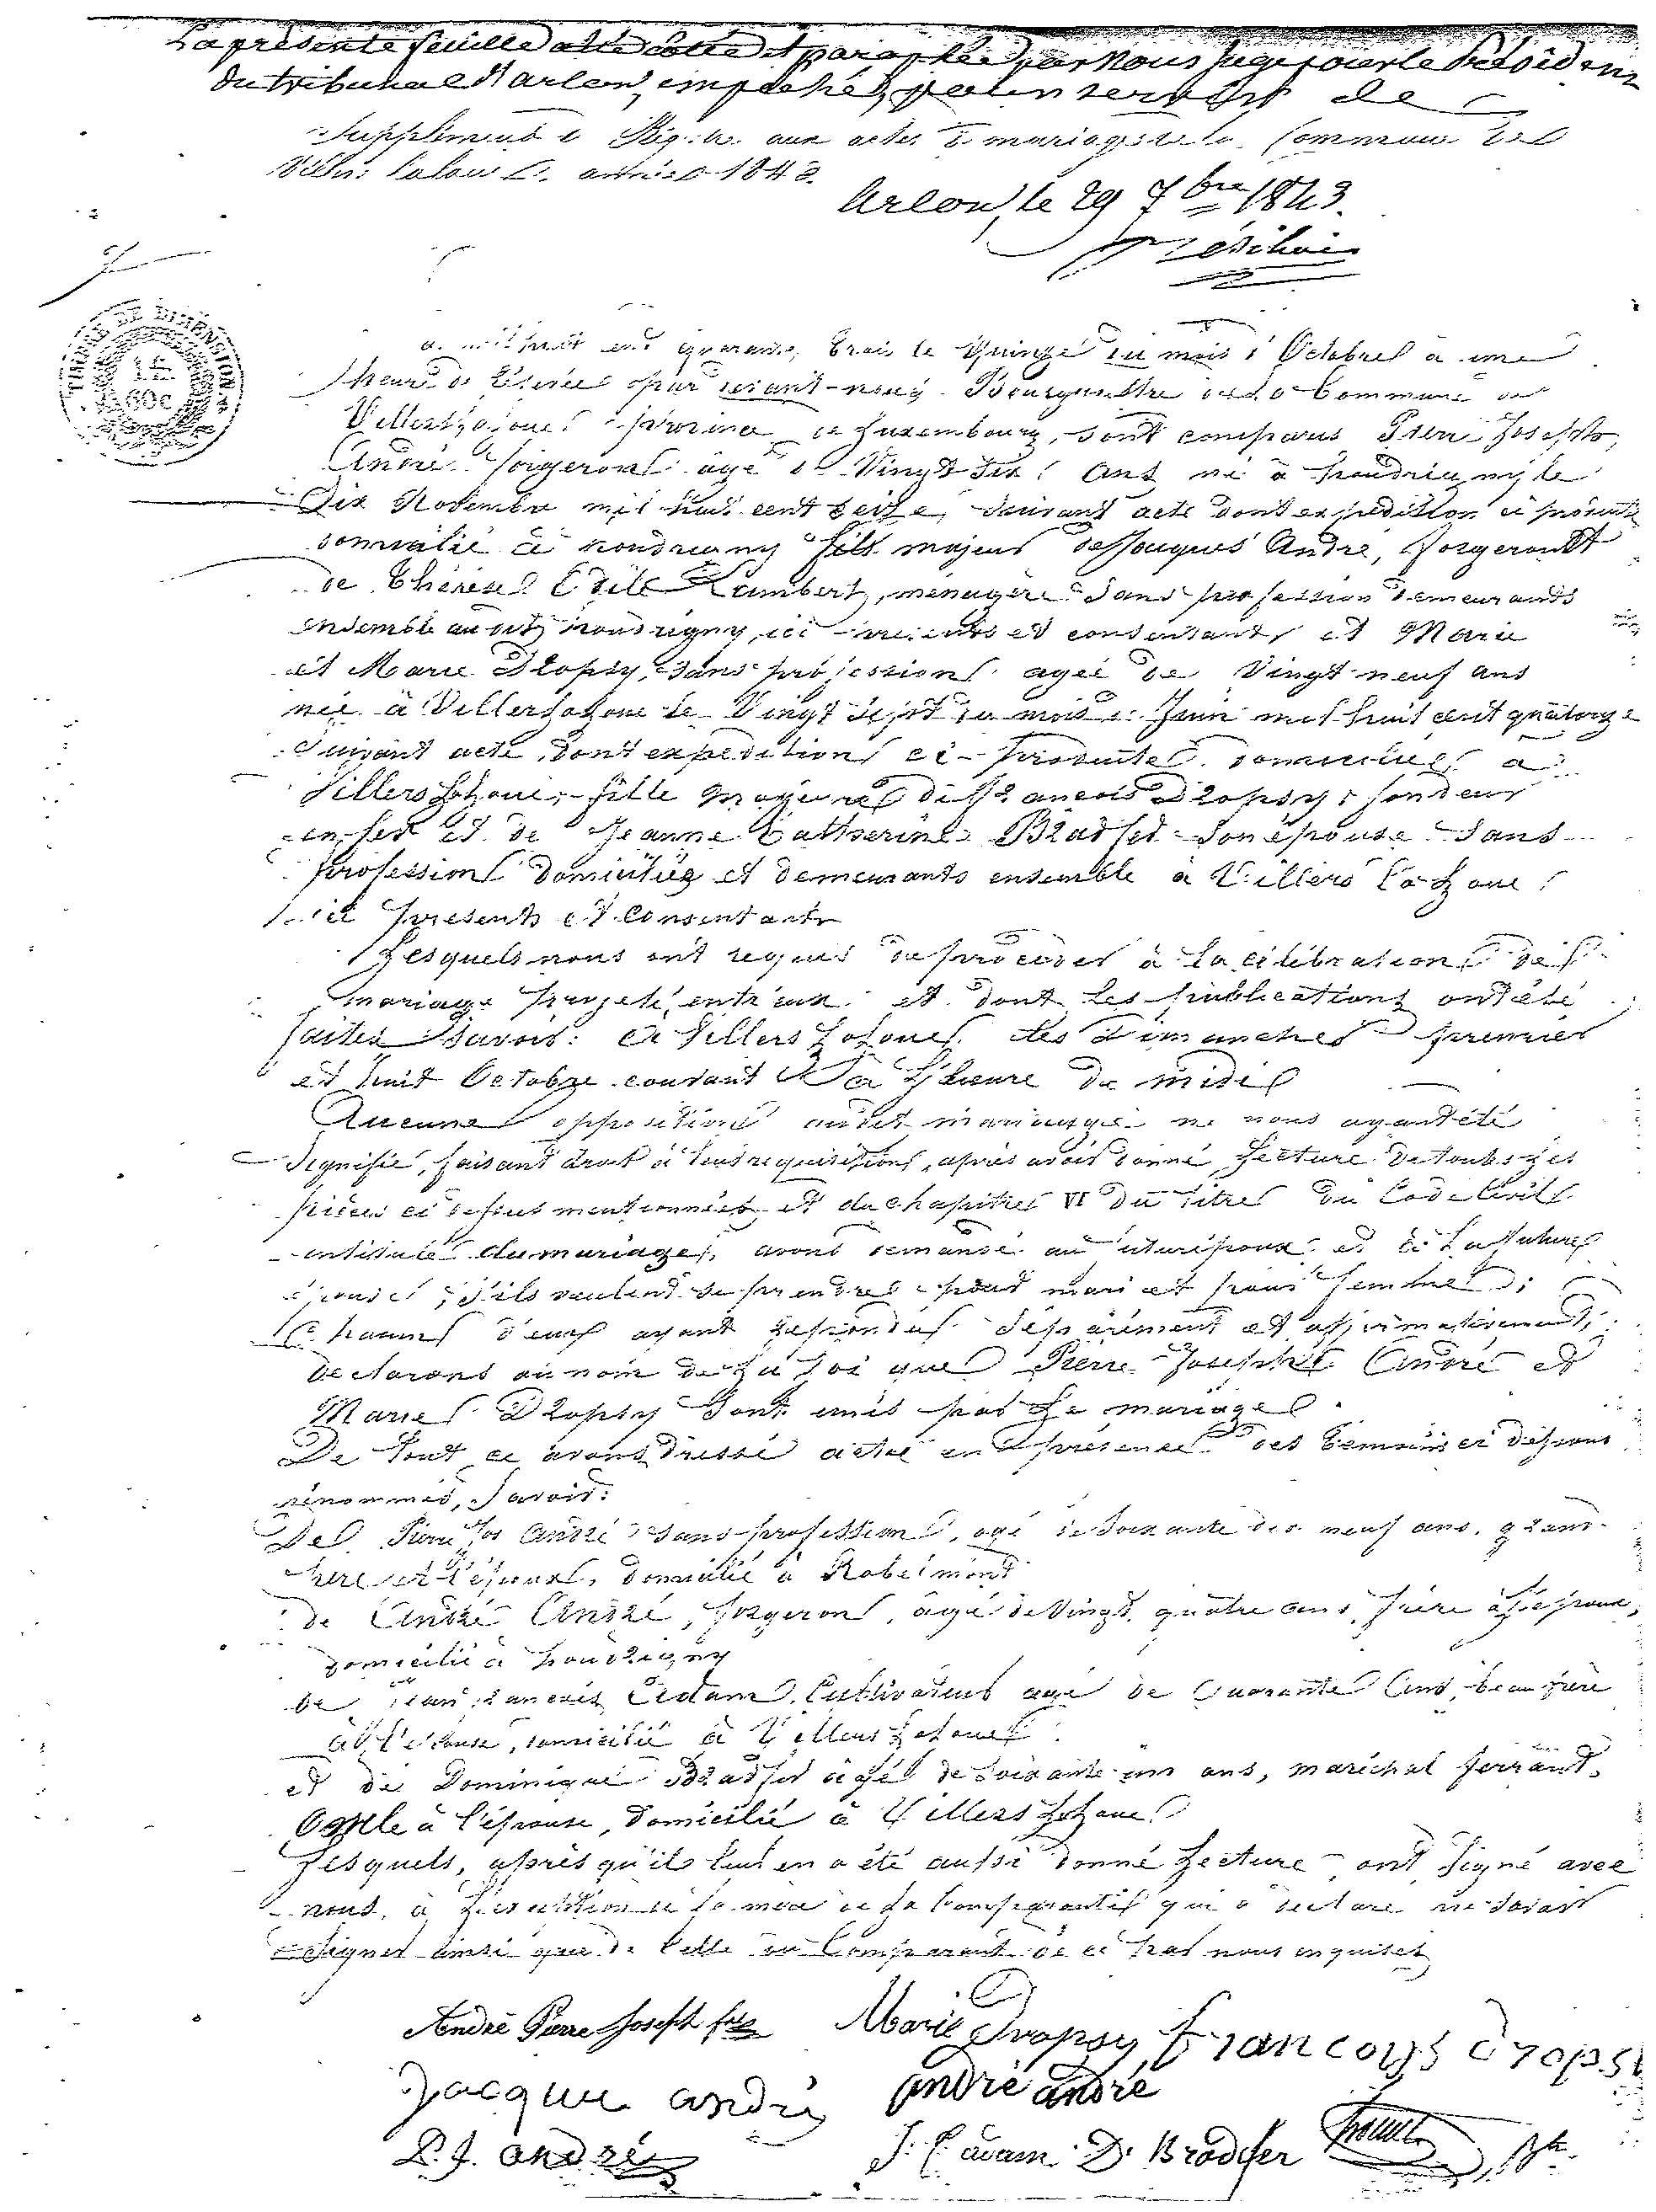 La présente feuille a été cotée et paraphée par Nous Juge pour le Présid
du tribunal d'arlon, empêché, pour servir de
Supplément au Régistre aux actes de mariages de la Commune de
Villers année 1843.
Arlon, le 29 7bre 1843.
TIMBRE DE DIMENSION
60c
mil huit cent quarante trois le Quinze du mois d'Octobre à une
heure de relevée par devant-nous Bourgmestre de la Commune de
Villers Laloue province de Luxembourg, sont comparus Pierre Joseph
André forgeron âgé de Vingt Six Ans né à houdrigny le
Dix Novembre mil huit cent seize, suivant acte dont expédition ci produite
domicilié à houdrigny fils majeur de Jacques André, forgeron et
de Thérèse Odile Lambert, ménagère sans profession demeurants
ensemble audit houdrigny, ici présents et consentants et Marie
et Marie Dropsy, sans profession agée de Vingt neuf ans
née à Villers Laloue le Vingt Sept du mois de Juin mil huit cent quatorze
suivant acte dont expédition ci-produite domiciliée à
Villers Laloue, fille majeure de François Dropsy, fondeur
en fer et de Jeanne Catherine Bradfer son épouse sans
profession domiciliés et demeurants ensemble à Villers La Loue
ici présents et consentants
Lesquels nous ont requis de procéder à la célébration de
mariage projeté entr'eux et dont les publications ont été
faites savoir: à Villers Laloue les Dimanches premier
et huit Octobre courant à L'heure de midi
Aucune opposition audit mariage ne nous ayant été
signifié, faisant droit à leur requisition, après avoir donné Lecture de toutes les
pièces ci dessus mentionnées et du chapitre VI du titre du Code Civil
intitulé du mariage, avons demandé au futur époux et à La future
épouse, s'ils veulent se prendre pour mari et pour femme;
Chacun d'eux ayant répondu séparément et affirmativement;
declarons au nom de La Loi que Pierre Joseph André et
Marie Dropsy sont unis par Le mariage.
De tout ce avons dressé acte en présence des témoins ci dessous
dénommés, Savoir:
De Pierre Jos André sans profession, agé de Soixante dix neuf ans, grand
père de l'époux, domicilié à Robelmont
de André André, forgeron, âgé de Vingt quatre ans, frère à l'époux,
domicilié à houdrigny
de Jean François Adam, Cultivateur agé de Quarante Ans, beau frère
à l'épouse, domicilié à Villers Laloue
et de Dominique Bradfer âgé de Soixante un ans, maréchal ferrant,
Oncle à l'épouse, domicilié à Villers Laloue
Lesquels, après qu'il leur en a été aussi donné Lecture ont Signé avec
nous, à L'exception de la mère de La Comparante qui a declaré ne savoir
Signer ainsi que de Celle du Comparant de ce par nous enquises
André Pierre Joseph fils Marie Dropsy francoys drops
Jacque andré andré andré
P. J. andré J. f. adam D. Bradfer